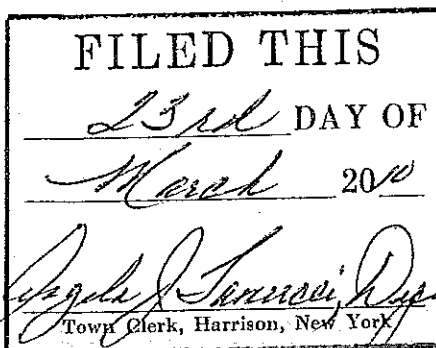 FILED THIS
23rd DAY OF
March 2010
Angela J
Town Clerk, Harrison, New York